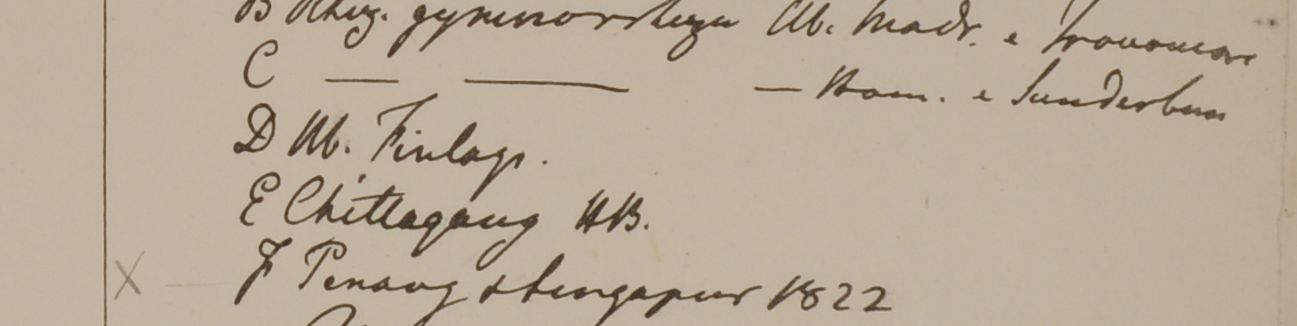 B Rhiz. gymnorrhiza Hb. Madr. e Travancor
C — — — Ham. e Sunderbun
D Hb. Finlays.
E Chittagong HB.
F Penang & Singapur 1822